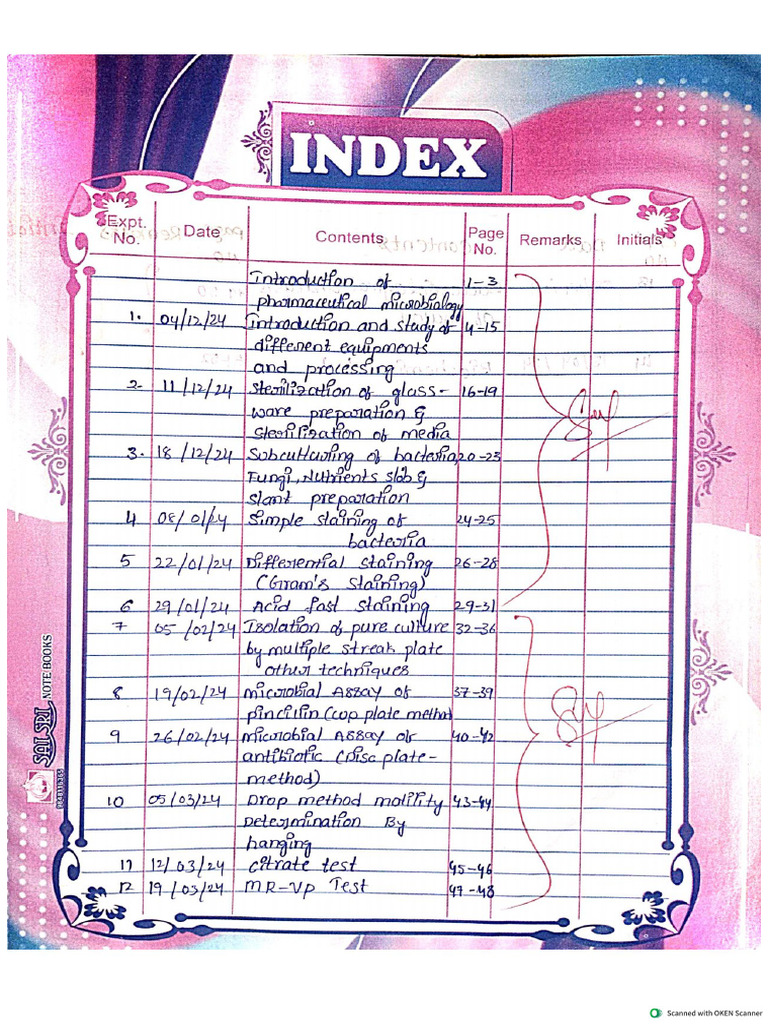 INDEX
Expt. No. Date Contents Page No. Remarks Initials
Introduction of 1-3
pharmaceutical microbiology
1. 04/12/24 Introduction and study of 4-15
different equipments
and processing
2. 11/12/24 Sterilization of glass- 16-19
ware preparation &
Sterilization of media
3. 18/12/24 Subculturing of bacteria, 20-23
Fungi, Nutrients slob &
slant preparation
4 08/01/24 Simple staining of 24-25
bacteria
5 22/01/24 Differential staining 26-28
(Gram's staining)
6 29/01/24 Acid fast staining 29-31
7 05/02/24 Isolation of pure culture 32-36
by multiple streak plate
other techniques
8 19/02/24 Microbial Assay of 37-39
pincilin (cup plate method
9 26/02/24 Microbial Assay of 40-42
antibiotic (Disc plate-
method)
10 05/03/24 Drop method motility 43-44
Determination By
hanging
11 12/03/24 citrate test 45-46
12 19/03/24 MR-VP Test 47-48
SAI SRI NOTE BOOKS
Scanned with OKEN Scanner